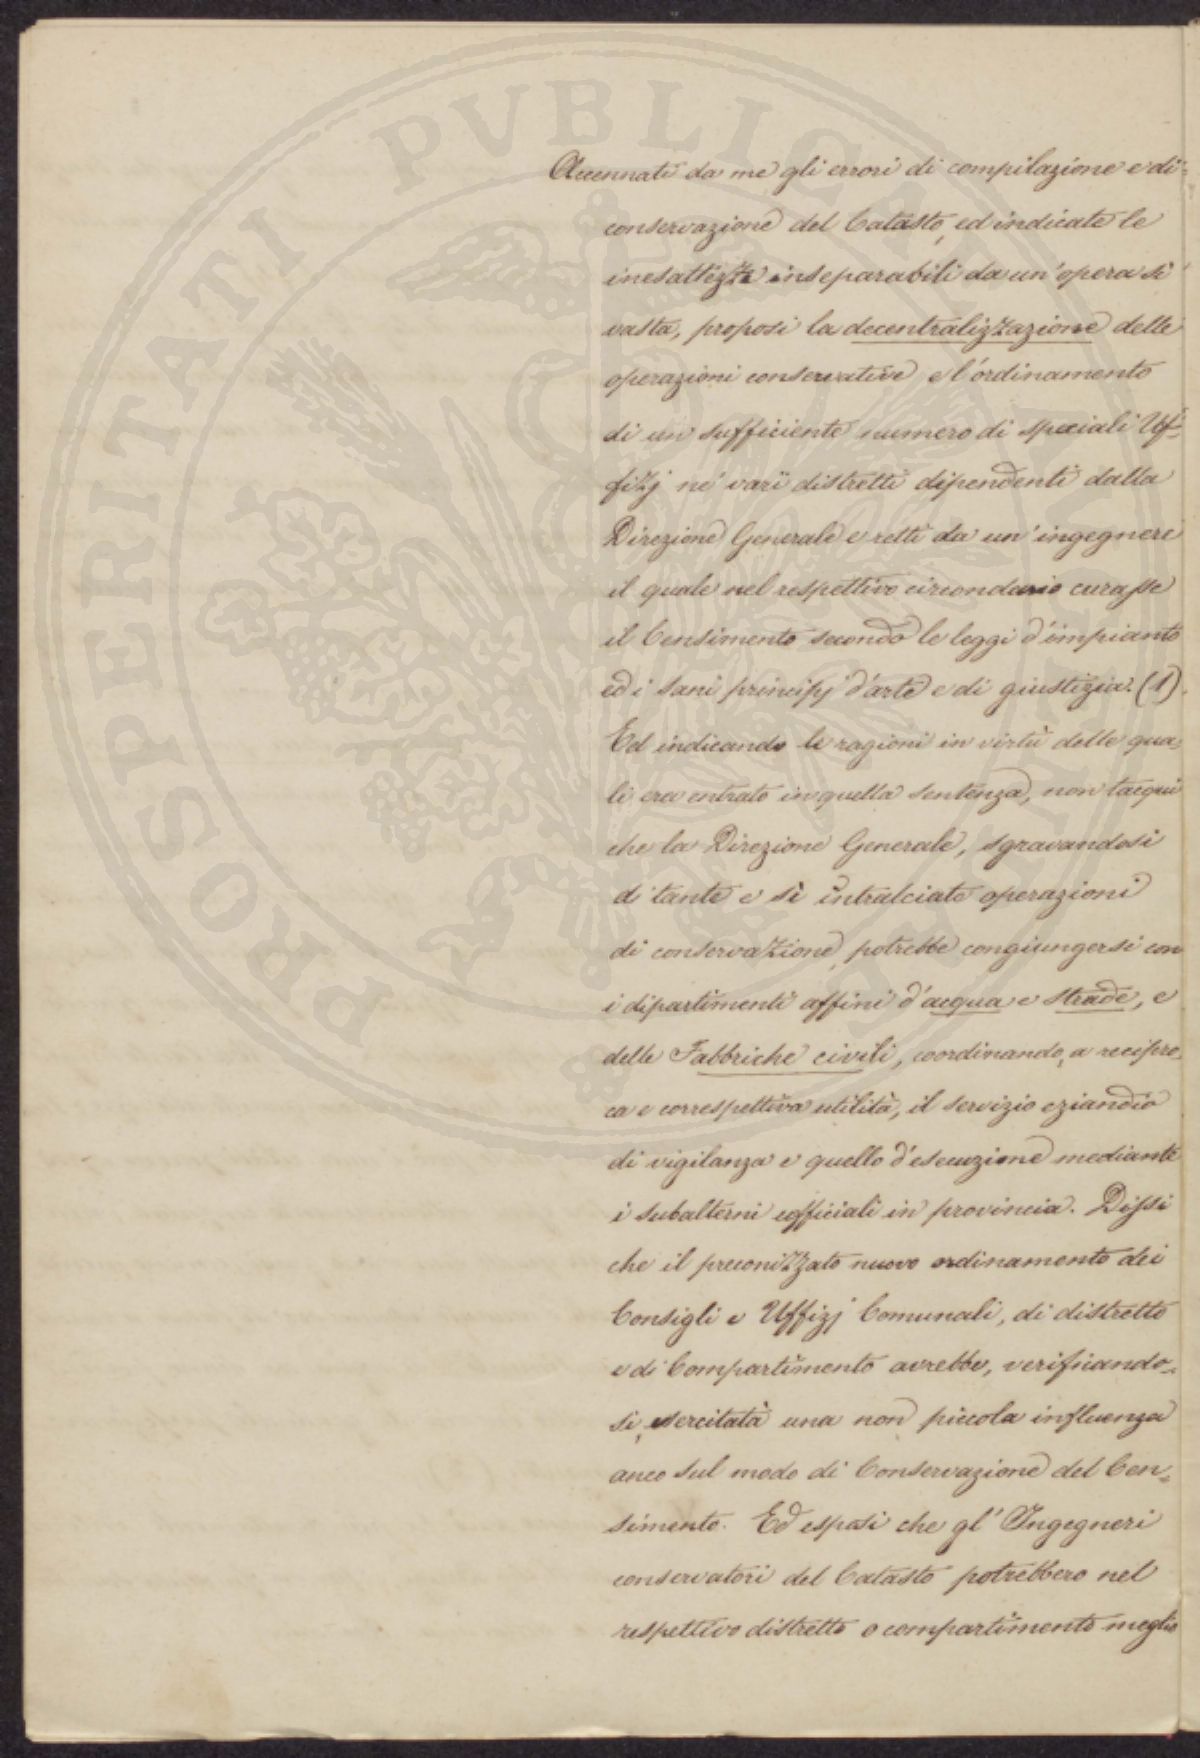 Accennati da me gli errori di compilazione e di
conservazione del Catasto, ed indicate le
inesattezze inseparabili da un'opera sì
vasta, proposi la decentralizzazione delle
operazioni conservative, e l'ordinamento
di un sufficiente numero di speciali Uf-
fizj ne' varii distretti dipendenti dalla
Direzione Generale e retti da un'ingegnere
il quale nel respettivo circondario curasse
il Censimento secondo le leggi d'impianto
ed i sani principj d'arte e di giustizia. (1)
Ed indicando le ragioni in virtù delle qua-
li era entrato in quella sentenza, non tacqui
che la Direzione Generale, sgravandosi
di tante e sì intralciate operazioni
di conservazione, potrebbe congiungersi con
i dipartimenti affini d'acqua e strade, e
delle Fabbriche civili, coordinando, a recipro-
ca e correspettiva utilità, il servizio eziandio
di vigilanza e quello d'esecuzione mediante
i subalterni ufficiali in provincia. Dissi
che il preconizzato nuovo ordinamento dei
Consigli e Uffizj Comunali, di distretto
e di Compartimento avrebbe, verificando-
si, esercitatà una non piccola influenza
anco sul modo di Conservazione del Cen-
simento. Ed esposi che gl'Ingegneri
conservatori del Catasto potrebbero nel
respettivo distretto o compartimento meglio
PROSPERITATI PVBLICAE